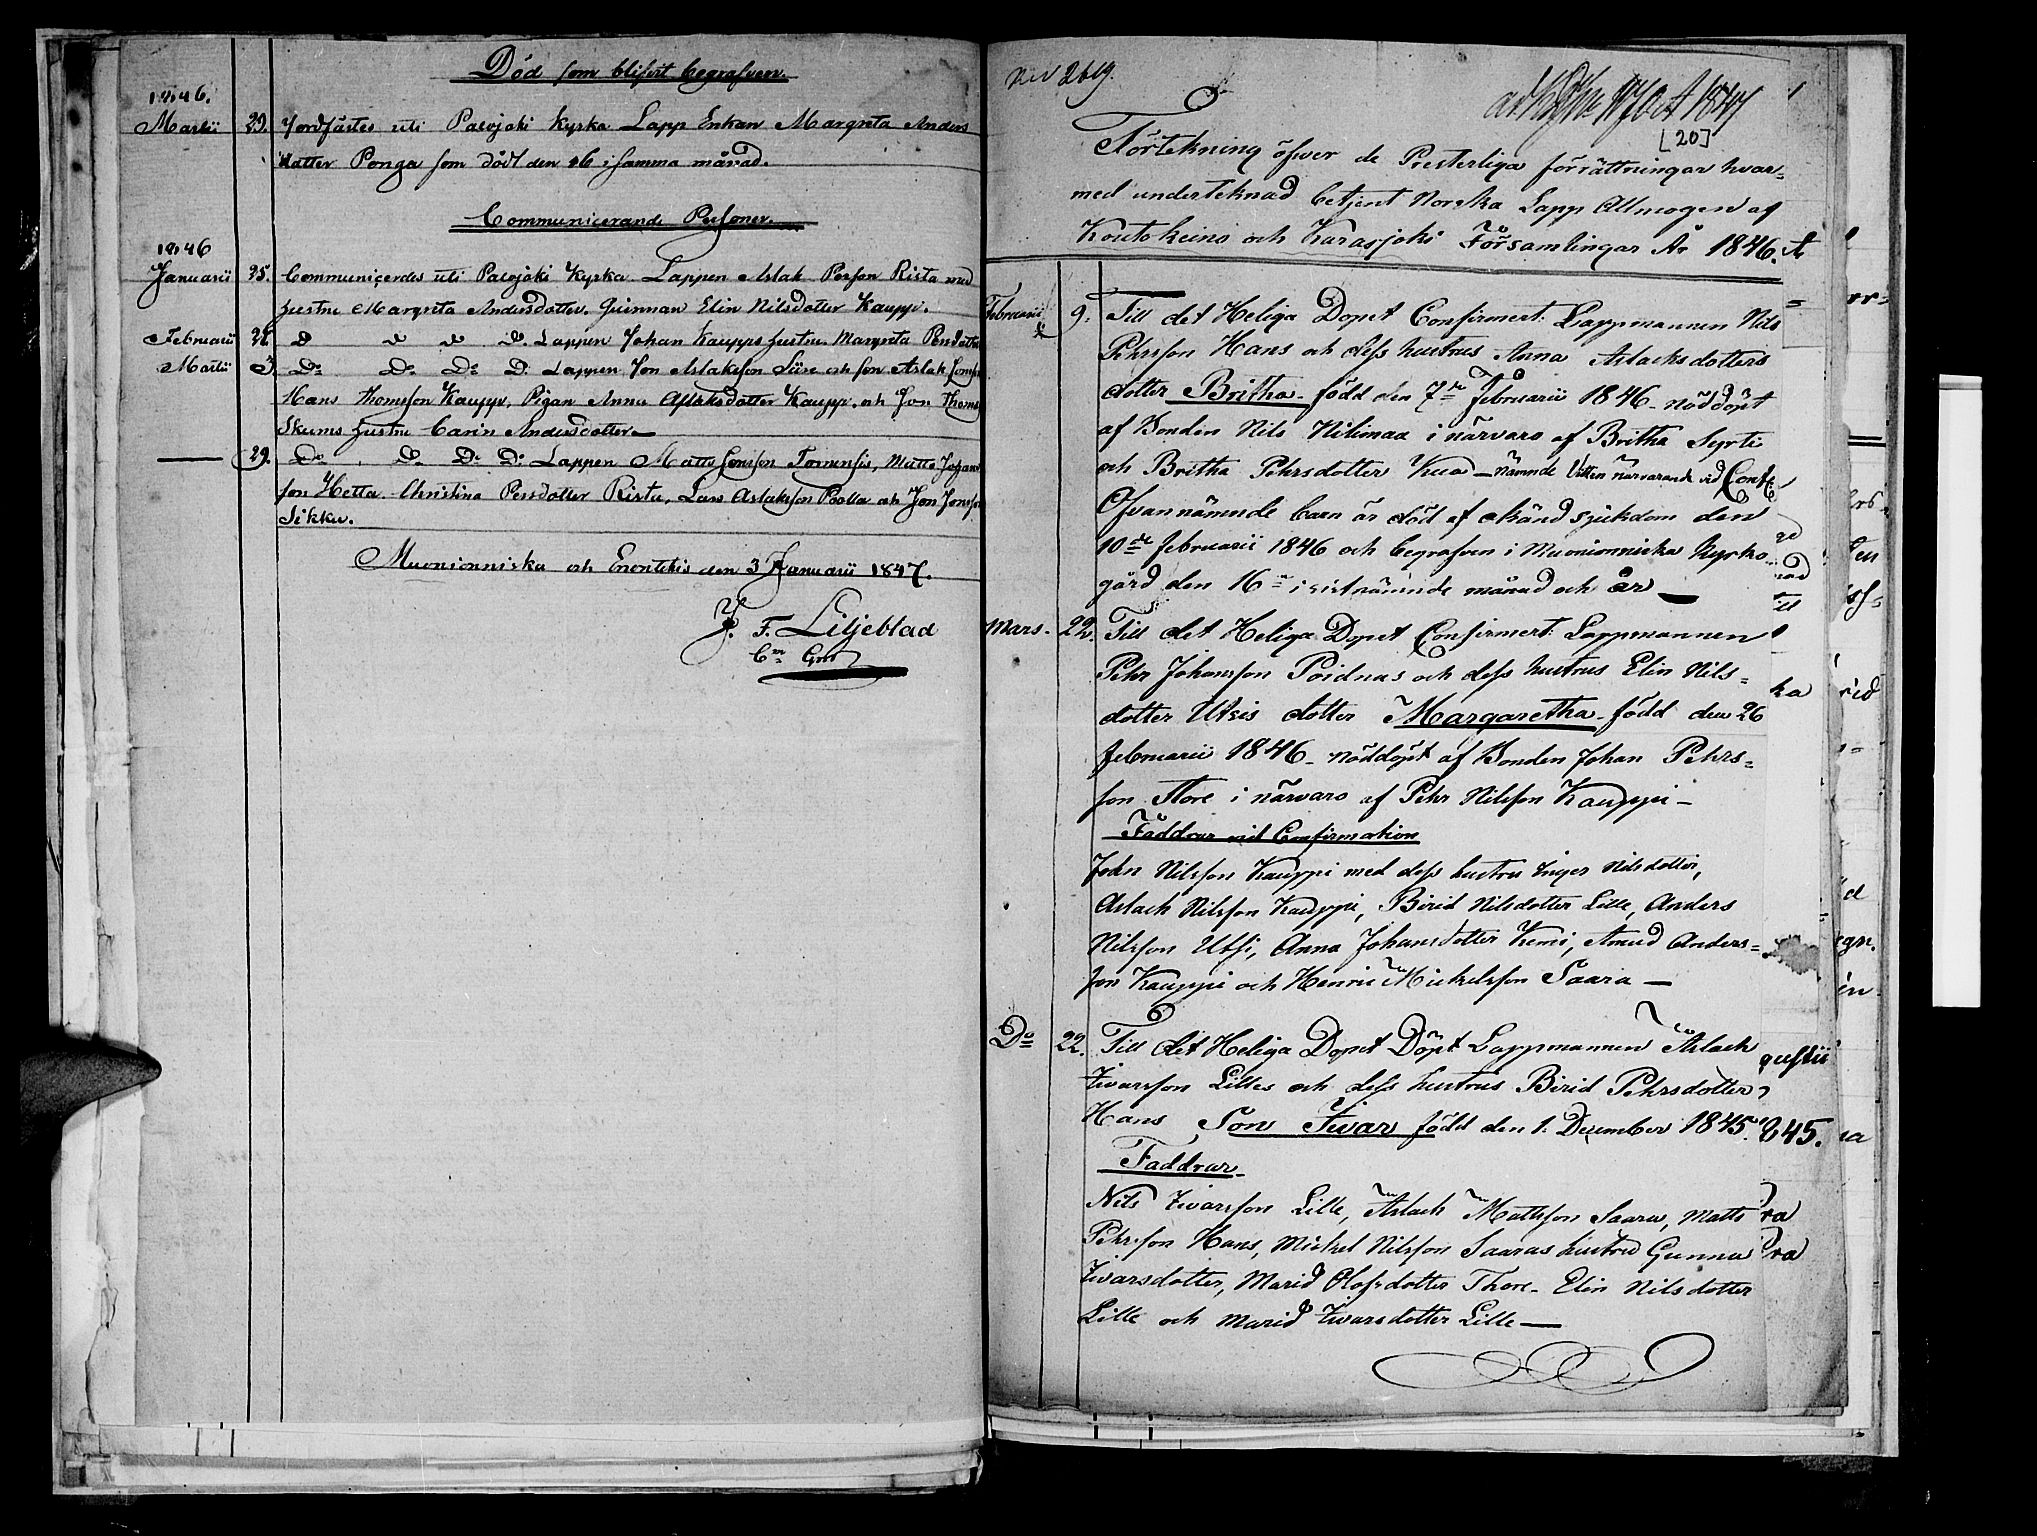 Död som blifvit begrafven.
1846.
Martii 29. Jordfästes uti Palojoki Kyrka Lapp Enkan Margreta Anders
dotter Ponga som död den 16 i samma månad.
Communicerande Personer.
1846
Januarii 25. Communicerdes uti Palojoki Kyrka Lappen Aslak Persson Rista med
hustru Margreta Andersdotter. Quinnan Elin Nilsdotter Kauppi.
Februarii 22 D D D D. Lappen Johan Kauppis hustru Margreta Persdotter
Martii 3. Do Do Do D. Lappen Jon Aslaksson Siire och son Aslak Jonsson
Hans Thomsson Kauppi, Pigan Anna Aslaksdotter Kauppi. och Jon Thoms
Skums hustru Carin Andersdotter
29. Do Do Do Do Lappen Matts Jonsson Tornensis, Matts Johans
son Hetta. Christina Persdotter Rista, Lars Aslaksson Palla och Jon Jonsson
Sikku.
Muonionniska och Enontekis den 3 Januarii 1847.
J. F. Liljeblad
No 2619.
[20]
Förtekning öfver de Presterliga förrättningar hvar=
med underteknad betjent Norska Lapp Allmogen af
Koutokeino och Karasjoki Församlingar År 1846.
Februarii 9. Till det Heliga Dopet Confirmert: Lappmannen Nils
Pehrsson Hans och dess hustrus Anna Aslacksdotters
dotter Britha. född den 7de Februarii 1846. nöddöpt
af Bonden Nils Nilimaa i närvaro af Britha Syrti
och Britha Pehrsdotter Kua — nämnde Vitten närvarande vid Conf:
Ofvannämnde barn är död af okänd sjukdom den
10de februarii 1846 och begrafven i Muonionniska Kyrko
gård den 16de i sistnämnde månad och år —
Mars. 22. Till det Heliga Dopet Confirmert: Lappmannen
Pehr Johansson Poidnas och dess hustrus Elin Nils=
dotter Utsis dotter Margaretha. född den 26
februarii 1846. nöddöpt af Bonden Johan Pehrs=
son Thore i närvaro af Pehr Nilsson Kauppi —
Faddrar vid Confirmation
John Nilsson Kauppi med dess hustru Inger Nilsdotter,
Aslach Nilsson Kauppi, Birid Nilsdotter Lille, Anders
Nilsson Utsi, Anna Johansdotter Kemi, Amud Anders=
son Kauppi och Henric Mickelsson Saara —
Do 22. Till det Heliga Dopet Döpt Lappmannen Aslach
Ivarsson Lilles och dess hustrus Birid Pehrsdotter
Hans Son Ivar född den 1. December 1845.
Faddrar
Nils Ivarsson Lille, Aslach Mathsson Saara, Matts
Pehrsson Hans, Michel Nilsson Saaras hustru Gunna
Ivarsdotter, Marid Olofsdotter Thore. Elin Nilsdotter
Lille och Marid Ivarsdotter Lille —